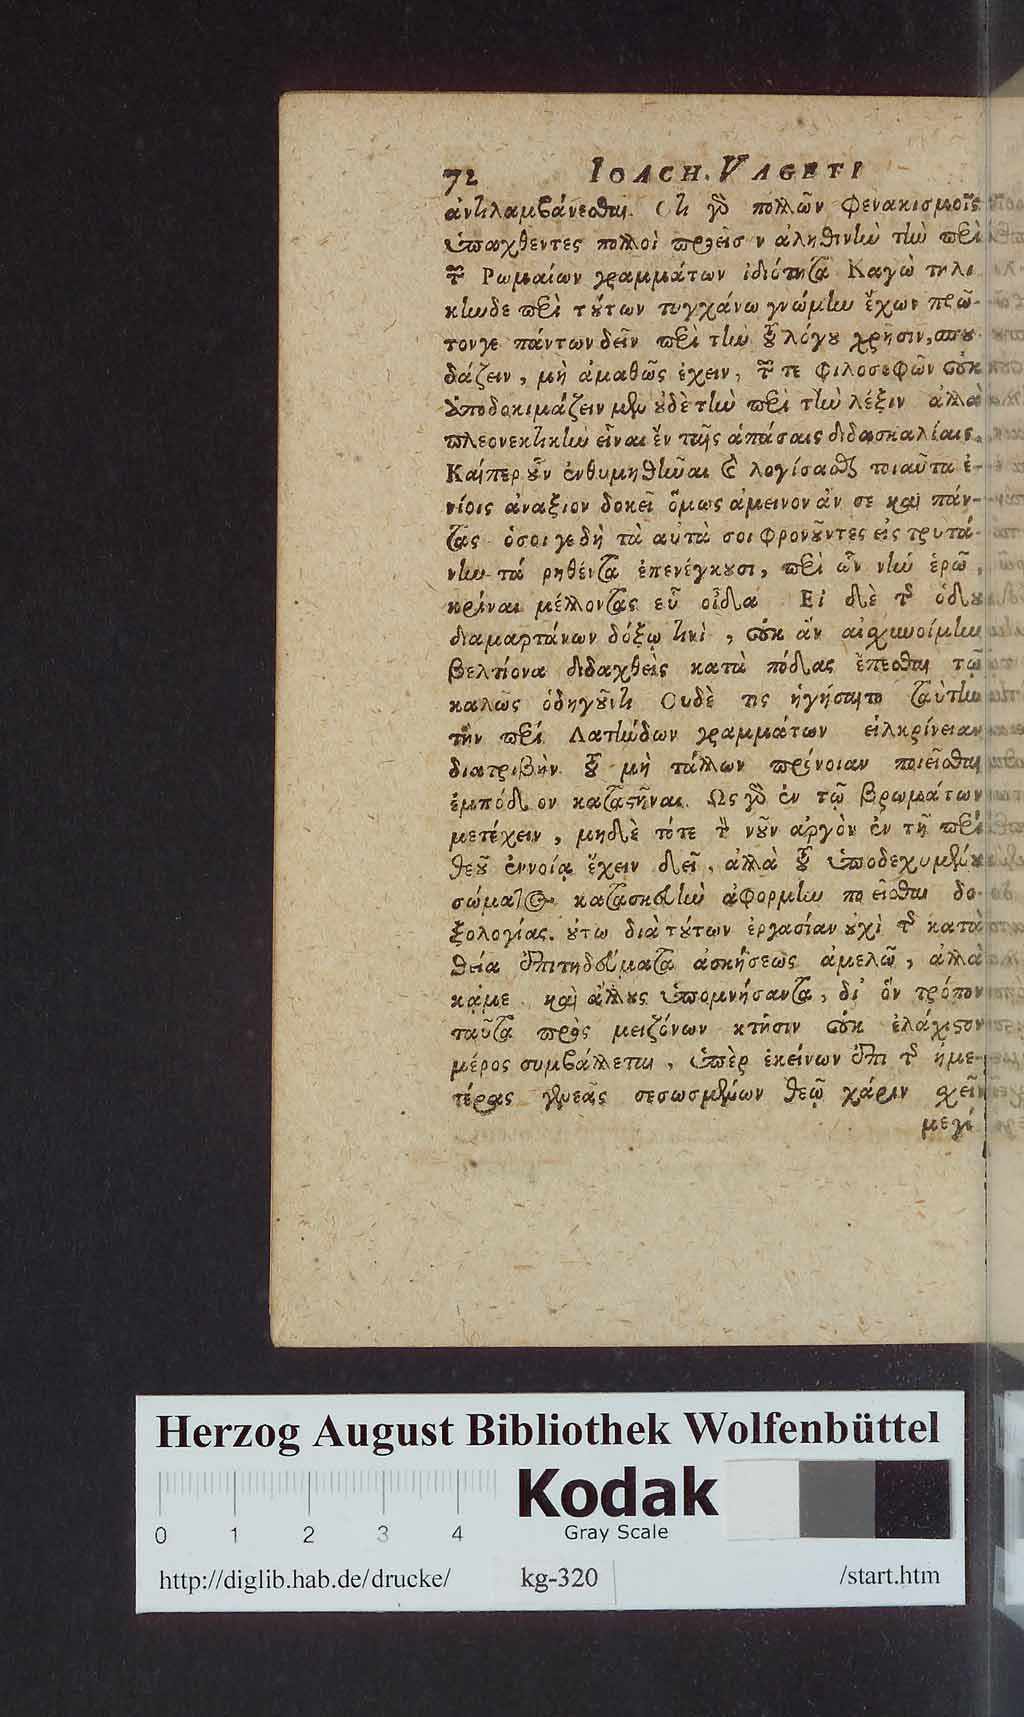 72 IOACH. VAGETI
ἀντιλαμβάνεσθαι. Ὅτι γὸ πολλῶν φενακισμοῖς
ὑπαχθέντες πολλοὶ ἀληθινὴν τὴν περὶ
τῶν Ρωμαίων γραμμάτων ἰδιότητα Καγὼ τηλι
κήνδε περὶ τούτων τυγχάνω γνώμην ἔχων πρῶ-
τονγε πάντων δεῖν περὶ τὴν τοῦ λόγου χρῆσιν, σπου-
δάζειν, μὴ ἀμαθῶς ἔχειν, τῶν τε φιλοσοφῶν οὐκ
ἀποδοκιμάζειν μὲν οὐδὲ τὴν περὶ τὴν λέξιν ἀλλὰ
πλεονεκτικὴν εἶναι ἐν ταῖς ἁπάσαις διδασκαλίαις.
Καίπερ οὖν ἐνθυμηθῆναι καὶ λογίσασθαι τοιαῦτα ἐ-
νίοις ἀναξιον δοκεῖ ὅμως ἀμεινον ἀν σε καὶ πάν-
τας ὅσοι γε δὴ τὰ αὐτὰ σοι φρονοῦντες εἰς τρυτά-
νην τά ρηθέντα ἐπενέγκουσι, περὶ ὧν νιώ ἐρῶ,
κρίναι μέλλοντας εὖ οἶδα Εἰ δὲ τῆς ὁδοῦ
διαμαρτάνων δόξω τινὶ, οὐκ ἂν αἰσχυνοίμην
βελτίονα διδαχθεὶς κατὰ πόδας ἕπεσθαι τῷ
καλῶς ὁδηγοῦντι Ουδὲ τις ἡγήσαιτο ταὐτὴν
τὴν περὶ Λατινίδων γραμμάτων εἰλικρίνειαν
διατριβὴν τοῦ μὴ τἄλλων πρόνοιαν ποιεῖσθαι
ἐμπόδιον καταστῆναι. Ως γὸ ἐν τῷ βρωμάτων
μετέχειν, μηδὲ τότε τὸν νοῦν ἀργὸν ἐν τῇ περὶ
θεοῦ ἐννοίᾳ ἔχειν δεῖ, ἀλλὰ τοῦ ὑποδεχομένου
σώματος κατασκευὴν ἀφορμὴν ποιεῖσθαι δο-
ξολογίας. οὕτω διὰ τούτων ἐργασίαν οὐχὶ τῆς κατὰ
θεία ἐπιτηδεύματα ἀσκήσεως ἀμελῶ, ἀλλὰ
κᾀμε καὶ ἄλλους ὑπομνήσαντα, δι' ὃν τρόπον
ταῦτα πρὸς μειζόνων κτήσιν οὐκ ἐλάχιστον
μέρος συμβάλλεται, ὑπὲρ ἐκείνων ἐπὶ τῆς ἡμε-
τέρας γενεᾶς σεσωσμένων θεῷ χάριν σχεῖν
μεγί
Herzog August Bibliothek Wolfenbüttel
0 1 2 3 4
Kodak
Gray Scale
http://diglib.hab.de/drucke/ kg-320 /start.htm